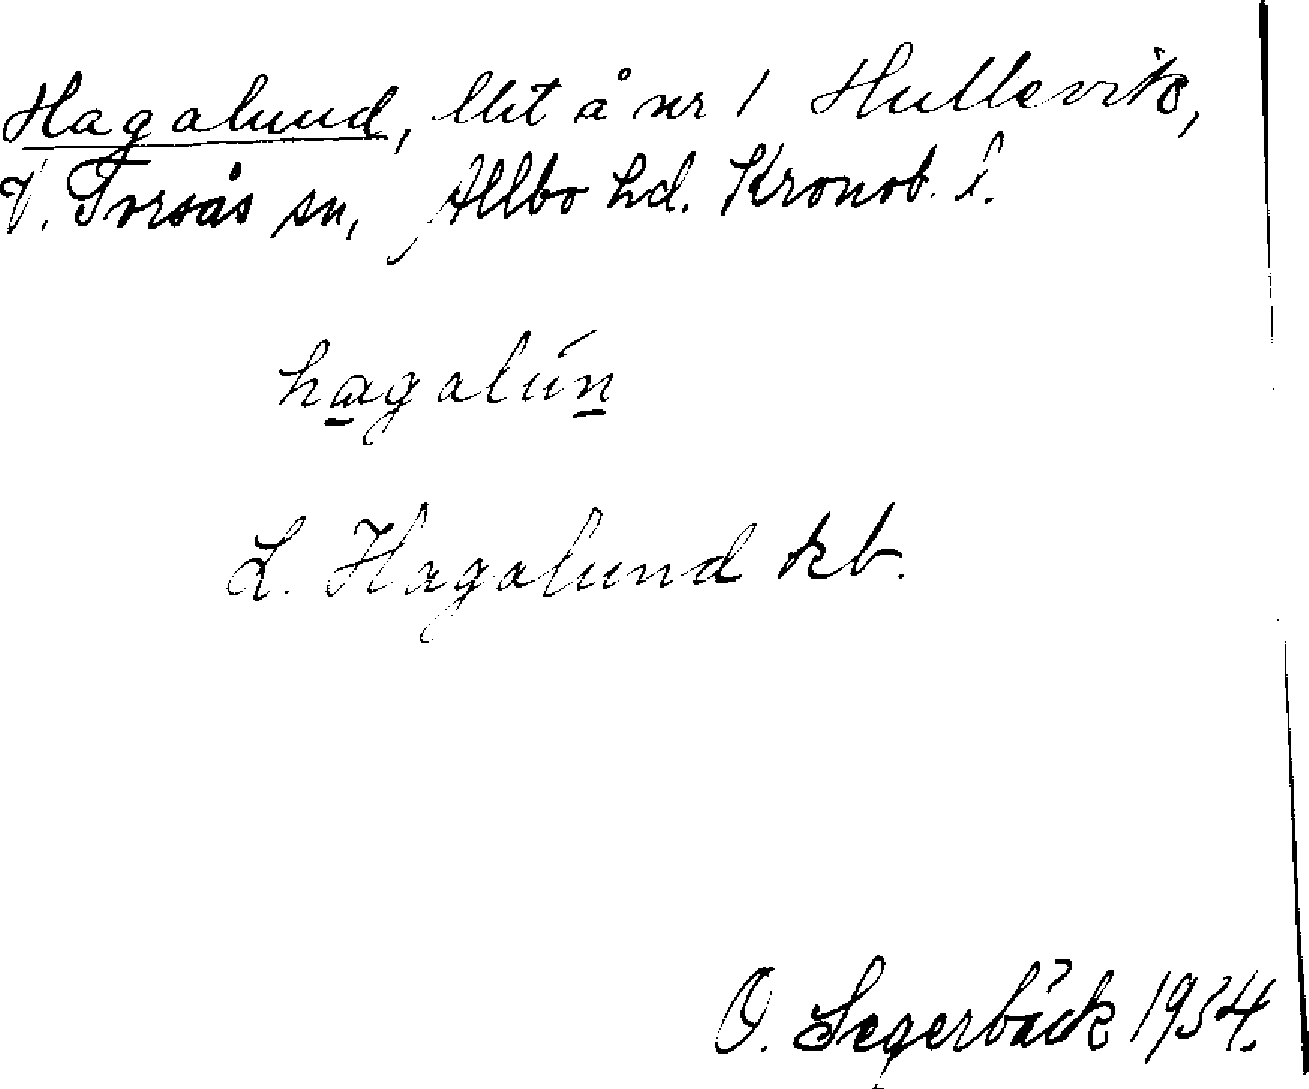 Hagalund, lht å nr 1 Hullsvik,
V. Torsås sn, Allbo hd. Kronob. l.
hagalún
L. Hagalund kb.
O. Segerbäck 1934.